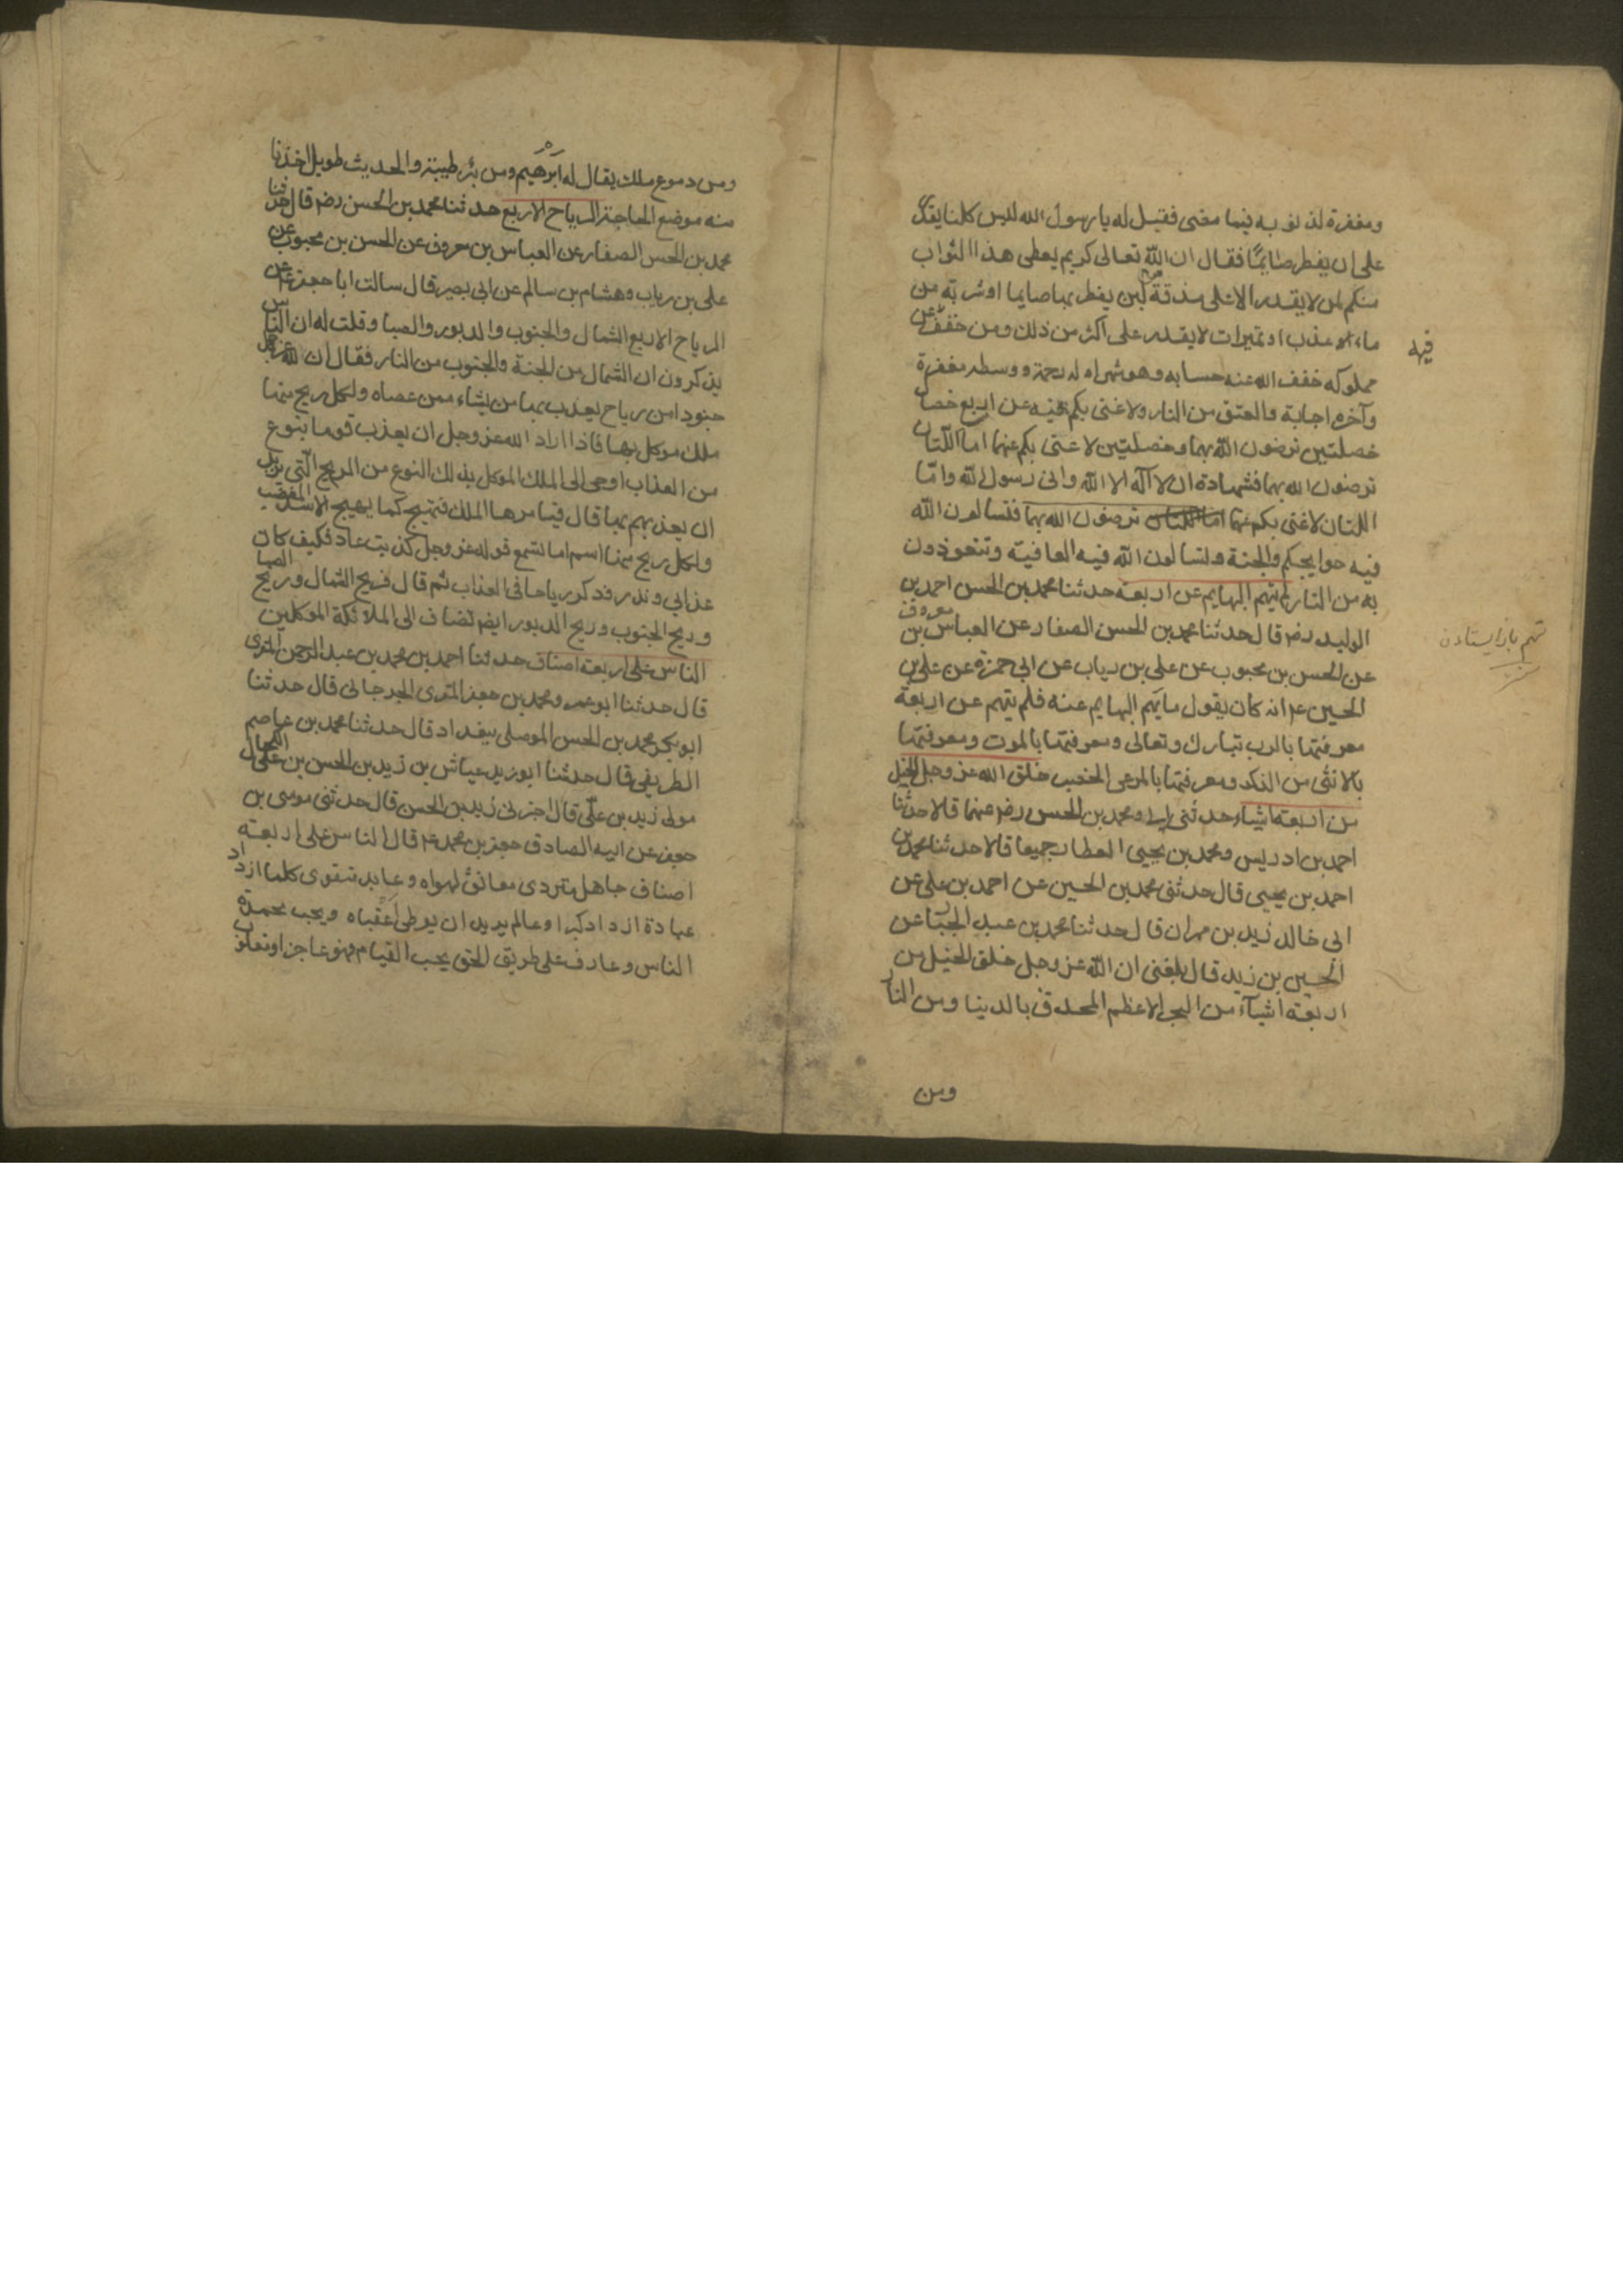 ومغفرة لذنوبه فيما مضى فقيل له يا رسول الله ليس كلنا يقدر
على ان يفطر صايما فقال ان الله تعالى كريم يعطى هذا الثواب
منكم لمن لا يقدر الا على مذقة من لبن يفطر بها صايما او شربة من
ماء عذب او تميرات لا يقدر على اكثر من ذلك ومن خفف عن
فيه
مملوكه خفف الله عنه حسابه وهو شهر اوله رحمة ووسطه مغفرة
وآخره اجابة والعتق من النار ولا غنى بكم فيه عن اربع خصال
خصلتين ترضون الله بهما وخصلتين لا غنى بكم عنهما اما اللتان
ترضون الله بهما فشهادة ان لا اله الا الله وانى رسول الله واما
اللتان لا غنى بكم عنهما اما اللتان ترضون الله بهما فتسالون الله
فيه حوايجكم والجنة وتسالون الله فيه العافية وتتعوذون
به من النار لم تبهم البهايم عن اربعة حدثنا محمد بن الحسن احمد بن
الوليد رضه قال حدثنا محمد بن الحسن الصفار عن العباس بن معروف
عن الحسن بن محبوب عن على بن رياب عن ابى حمزة عن على بن
الحسين ع انه كان يقول ما بهم البهايم عنه فلم تبهم عن اربعة
معرفتها بالرب تبارك وتعالى ومعرفتها بالموت ومعرفتها
بالانثى من الذكر ومعرفتها بالمرعى الخصب خلق الله عز وجل الخيل
من اربعة اشياء حدثنى ابى ومحمد بن الحسن رضه عنهما قالا حدثنا
احمد بن ادريس ومحمد بن يحيى العطار جميعا قالا حدثنا محمد بن
احمد بن يحيى قال حدثنى محمد بن الحسين عن احمد بن على عن
ابى خالد زيد بن مهران قال حدثنا محمد بن عبد الجبار عن
الحسين بن زيد قال بلغنى ان الله عز وجل خلق الخيل من
اربعة اشيآء من البحر الاعظم المحدق بالدنيا ومن النار
ومن
ومن دموع ملك يقال له ابرهيم ومن بئر طيبة والحديث طويل اخذنا
منه موضع الحاجة الرياح الاربع حدثنا محمد بن الحسن رضه قال حدثنا
محمد بن الحسن الصفار عن العباس بن معروف عن الحسن بن محبوب عن
على بن رياب وهشام بن سالم عن ابى بصير قال سالت ابا جعفر ع عن
الرياح الاربع الشمال والجنوب والدبور والصبا وقلت له ان الناس
يذكرون ان الشمال من الجنة والجنوب من النار فقال ان لله عز وجل
جنودا من رياح يعذب بها من يشاء ممن عصاه ولكل ريح منها
ملك موكل بها فاذا اراد الله عز وجل ان يعذب قوما بنوع
من العذاب اوحى الى الملك الموكل بذلك النوع من الريح التى يريد
ان يعذبهم بها قال فيامرها الملك فتهيج كما يهيج الاسد المغضب
ولكل ريح منها اسم اما تسمع قوله عز وجل كذبت عاد فكيف كان
عذابى ونذر فذكر رياحا فى العذاب ثم قال فريح الشمال وريح الصبا
وريح الجنوب وريح الدبور ايضه تضاف الى الملائكة الموكلين
الناس على اربعة اصناف حدثنا احمد بن محمد بن عبد الرحمن المقرى
قال حدثنا ابو عمرو محمد بن جعفر المقرى الجرجانى قال حدثنا
ابو بكر محمد بن الحسن الموصلى ببغداد قال حدثنا محمد بن عاصم
الطريفى قال حدثنا ابو زيد عياش بن زيد بن الحسن بن على الكحال
مولى زيد بن على قال اخبرنى زيد بن الحسن قال حدثنى موسى بن
جعفر عن ابيه الصادق جعفر بن محمد ع قال الناس على اربعة
اصناف جاهل متردى معانق لهواه وعابد متقوى كلما ازداد
عبادة ازداد كبرا وعالم يريد ان يوطى عقباه ويحب محمدة
الناس وعارف على طريق الحق يحب القيام فهو عاجز او مغلوب